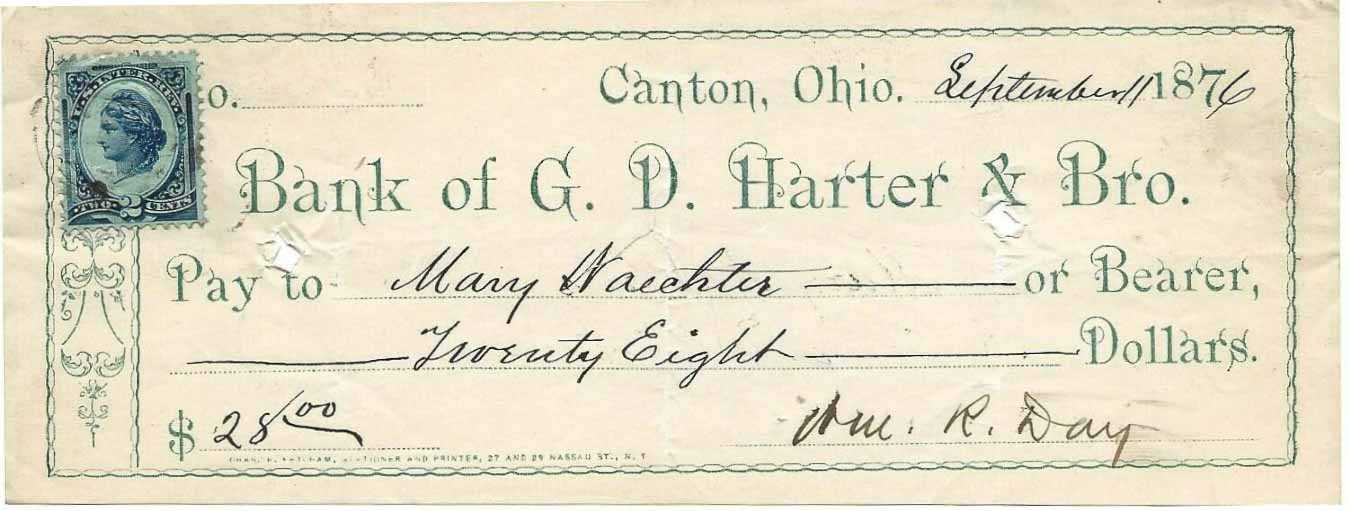 U.S. INTER. REV.
TWO 2 CENTS
o. Canton, Ohio. September 11 1876
Bank of G. D. Harter & Bro.
Pay to Mary Waechter or Bearer,
Twenty Eight Dollars.
$ 28.00 Wm. R. Day
STATIONER AND PRINTER, 27 AND 29 NASSAU ST., N. Y